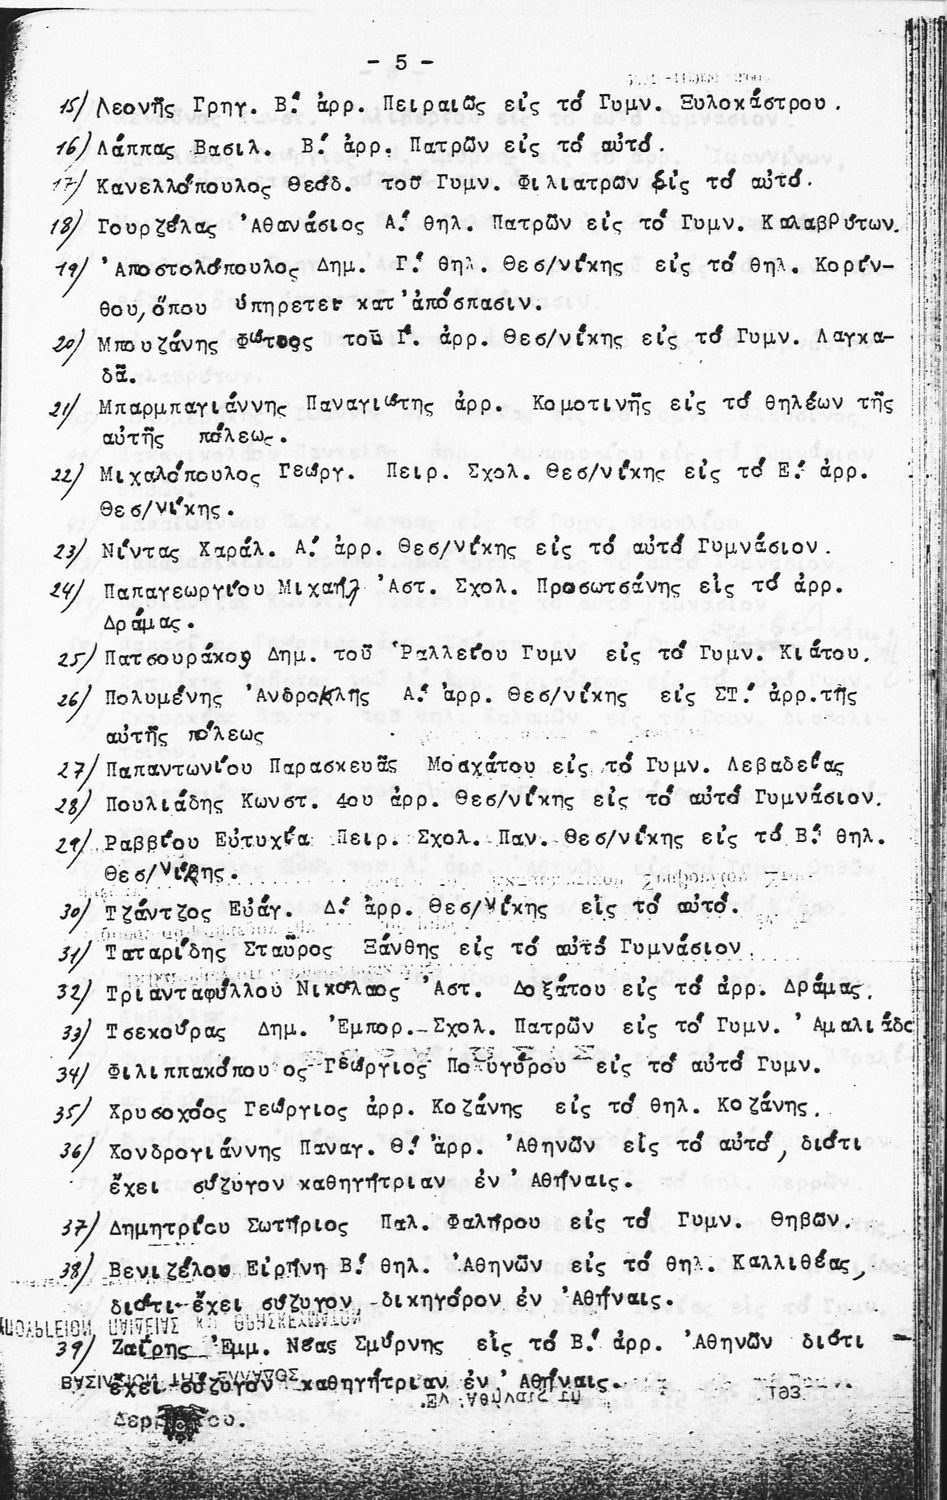 - 5 -
15/ Λεονῆς Γρηγ. Β.′ ἀρρ. Πειραιῶς εἰς τό Γυμν. Ξυλοκάστρου.
16/ Λάππας Βασιλ. Β.′ ἀρρ. Πατρῶν εἰς τό αὐτό.
17/ Κανελλόπουλος Θεόδ. τοῦ Γυμν. Φιλιατρῶν εἰς τό αὐτό.
18/ Γουρζέλας Ἀθανάσιος Α.′ θηλ. Πατρῶν εἰς τό Γυμν. Καλαβρύτων.
19/ Ἀποστολόπουλος Δημ. Γ.′ θηλ. Θεσ/νίκης εἰς τό θηλ. Κορίν-
θου, ὅπου ὑπηρετεῖ κατ' ἀπόσπασιν.
20/ Μπουζάνης Φώτιος τοῦ Γ′. ἀρρ. Θεσ/νίκης εἰς τό Γυμν. Λαγκα-
δᾶ.
21/ Μπαρμπαγιάννης Παναγιώτης ἀρρ. Κομοτινῆς εἰς τό θηλέων τῆς
αὐτῆς πόλεως.
22/ Μιχαλόπουλος Γεώργ. Πειρ. Σχολ. Θεσ/νίκης εἰς τό Ε.′ ἀρρ.
Θεσ/νίκης.
23/ Νίντας Χαράλ. Α.′ ἀρρ. Θεσ/νίκης εἰς τό αὐτό Γυμνάσιον.
24/ Παπαγεωργίου Μιχαήλ Ἀστ. Σχολ. Προσωτσάνης εἰς τό ἀρρ.
Δράμας.
25/ Πατσουράκος Δημ. τοῦ Ῥαλλείου Γυμν εἰς τό Γυμν. Κιάτου.
26/ Πολυμένης Ἀνδροκλῆς Α.′ ἀρρ. Θεσ/νίκης εἰς ΣΤ.′ ἀρρ.τῆς
αὐτῆς πόλεως
27/ Παπαντωνίου Παρασκευᾶς Μοσχάτου εἰς τό Γυμν. Λεβαδείας
28/ Πουλιάδης Κωνστ. 4ου ἀρρ. Θεσ/νίκης εἰς τό αὐτό Γυμνάσιον.
29/ Ραββίου Εὐτυχία Πειρ. Σχολ. Παν. Θεσ/νίκης εἰς τό Β.′ θηλ.
Θεσ/νίκης.
30/ Τζάντζος Εὐάγ. Δ.′ ἀρρ. Θεσ/νίκης εἰς τό αὐτό.
31/ Ταταρίδης Σταῦρος Ξάνθης εἰς τό αὐτό Γυμνάσιον.
32/ Τριανταφύλλου Νικόλαος Ἀστ. Δοξάτου εἰς τό ἀρρ. Δράμας.
33/ Τσεκούρας Δημ. Ἐμπορ. Σχολ. Πατρῶν εἰς τό Γυμν. Ἀμαλιάδς
34/ Φιλιππακόπου ος Γεώργιος Πολυγύρου εἰς τό αὐτό Γυμν.
35/ Χρυσοχόος Γεώργιος ἀρρ. Κοζάνης εἰς τό θηλ. Κοζάνης.
36/ Χονδρογιάννης Παναγ. Θ.′ ἀρρ. Ἀθηνῶν εἰς τό αὐτό, διότι
ἔχει σύζυγον καθηγήτριαν ἐν Ἀθήναις.
37/ Δημητρίου Σωτήριος Παλ. Φαλήρου εἰς τό Γυμν. Θηβῶν.
38/ Βενιζέλου Εἰρήνη Β.′ θηλ. Ἀθηνῶν εἰς τό θηλ. Καλλιθέας,
διότι ἔχει σύζυγον δικηγόρον ἐν Ἀθήναις.
39/ Ζαΐρης Ἐμμ. Νέας Σμύρνης εἰς τό Β.′ ἀρρ. Ἀθηνῶν διότι
ἔχει σύζυγον καθηγήτριαν ἐν Ἀθήναις.